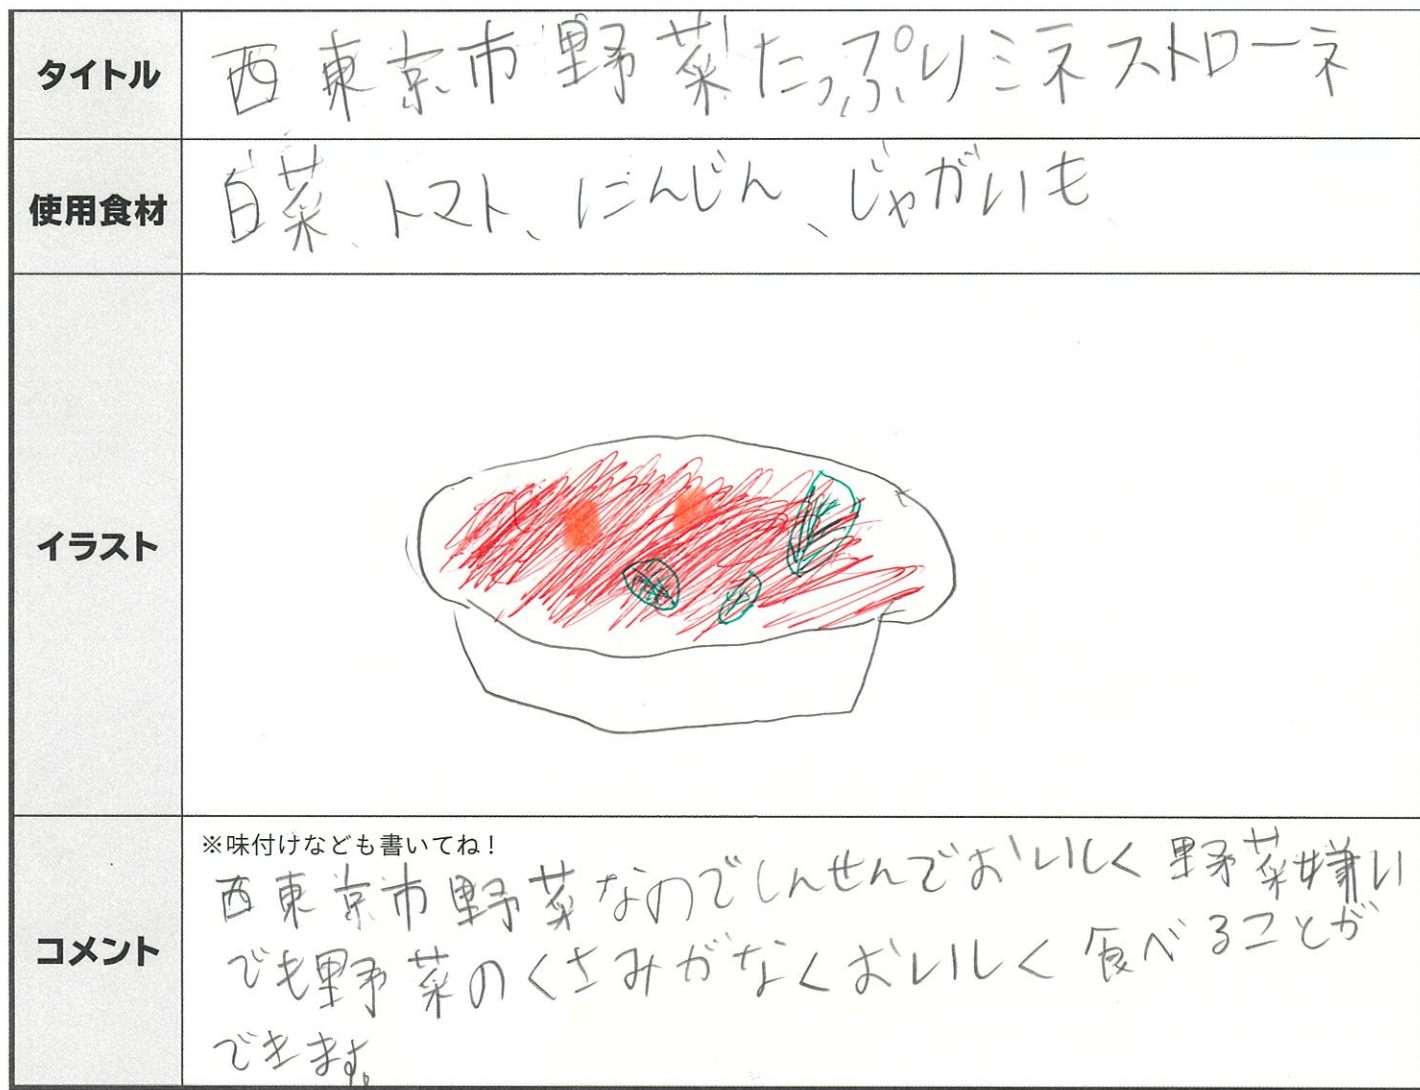 タイトル
西東京市野菜たっぷりミネストローネ
使用食材
白菜、トマト、にんじん、じゃがいも
イラスト
コメント
※味付けなども書いてね！
西東京市野菜なのでしんせんでおいしく野菜嫌い
でも野菜のくさみがなくおいしく食べることが
できます。